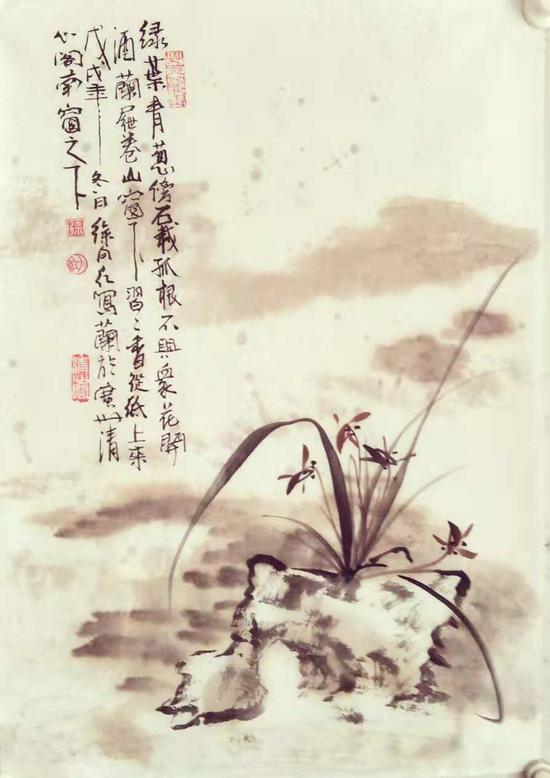 绿葉青葱傍石栽孤根不與眾花開
酒蘭展卷山窗下習々香從紙上來
戊戌年冬日徐向寫蘭於廣州清
心阁南窗之下